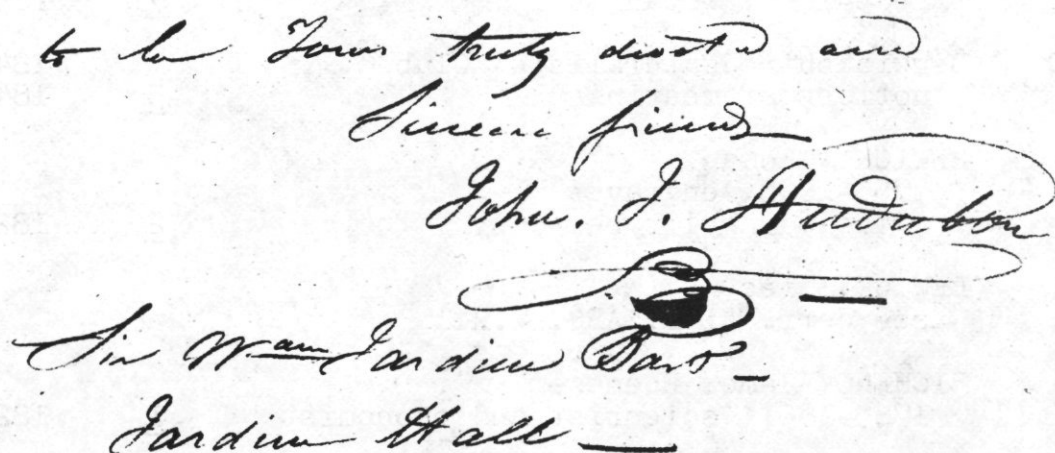 to be Yours truly devoted and
Sincere friend
John. J. Audubon
Sir Wam Jardine Bart
Jardine Hall